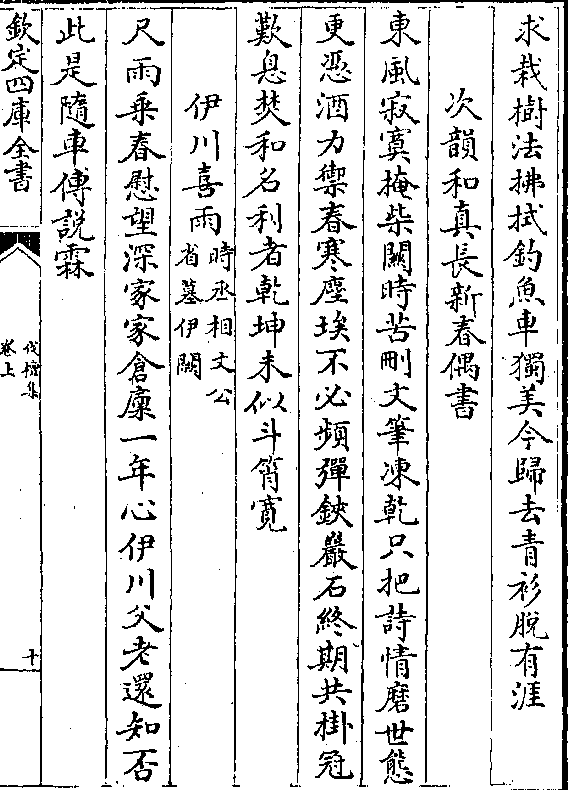 求栽樹法拂拭釣魚車獨美今歸去青衫脫有涯
次韻和真長新春偶書
東風寂寞掩柴關時苦刪文筆凍乾只把詩情磨世態
更憑酒力禦春寒塵埃不必頻彈鋏巖石終期共掛冠
歎息焚和名利者乾坤未似斗筲寛
伊川喜雨時丞相文公
省墓伊闕
尺雨乗春慰望深家家倉廩一年心伊川父老還知否
此是隨車傅説霖
欽定四庫全書
伐檀集
卷上
十